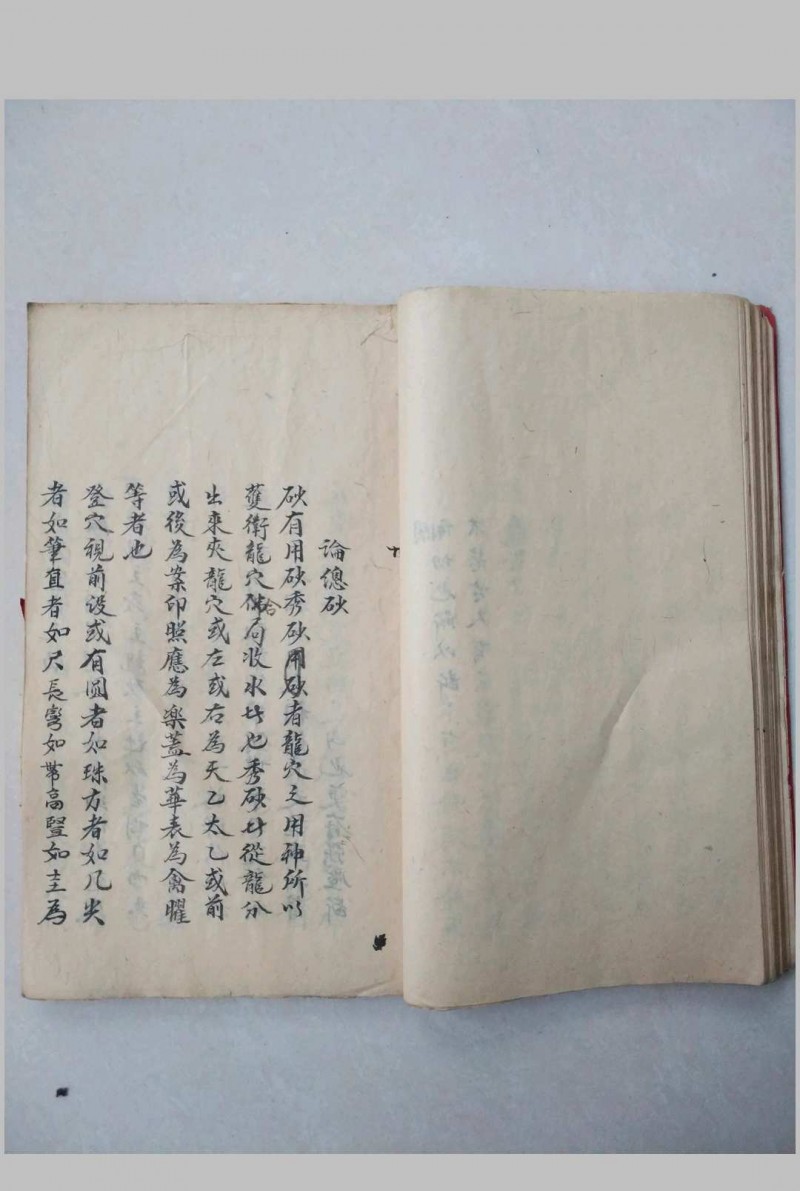 論總砂
砂有用砂秀砂用砂者龍穴之用神所以
護衛龍穴合局收水者也秀砂者從龍分
出來夾龍穴或左或右為天乙太乙或前
或後為案印照應為樂蓋為華表為禽曜
等者也
登穴視前設或有圓者如珠方者如几尖
者如筆直者如尺長彎如帶高豎如圭為